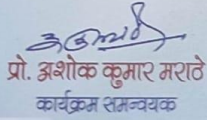 प्रो. अशोक कुमार मराठे
कार्यक्रम समन्वयक